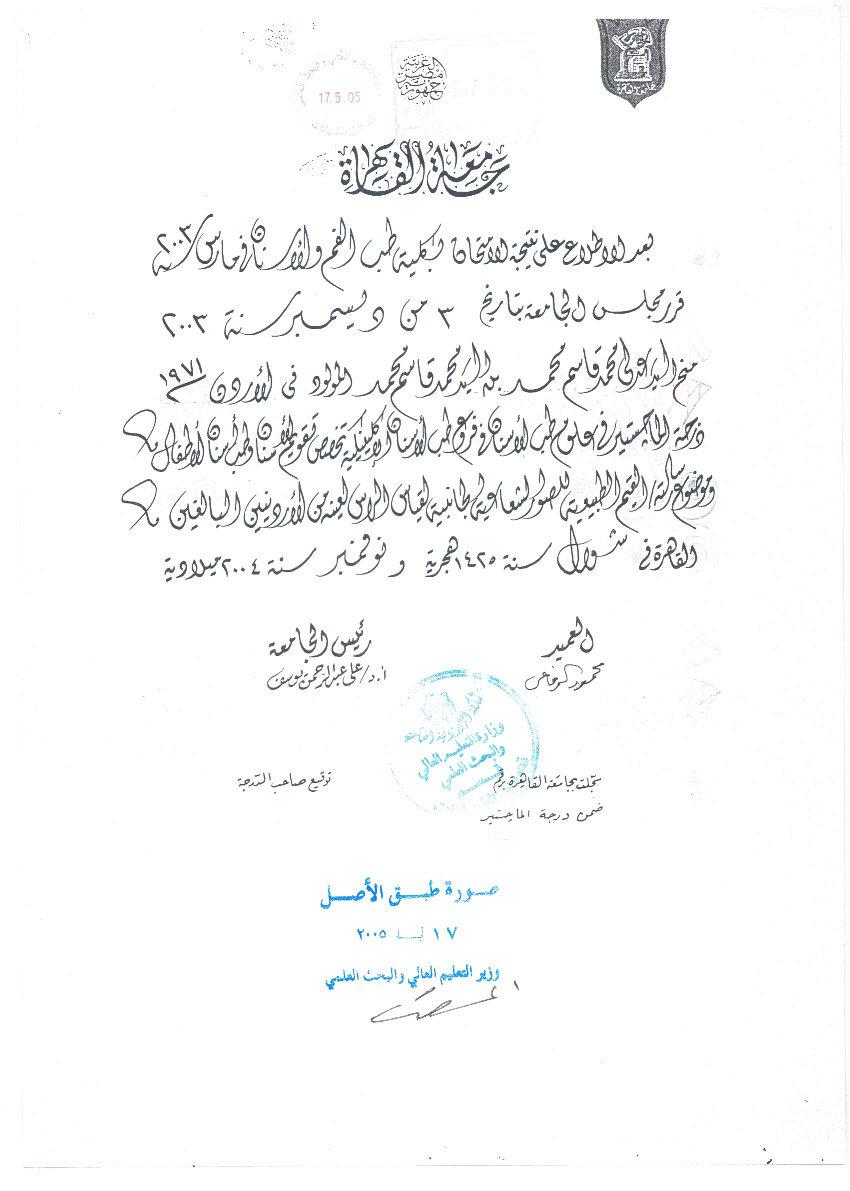 جمهورية مصر العربية
جامعة القاهرة
17.5.05
جامعة القاهرة
بعد الاطلاع على نتيجة الامتحان بكلية طب الفم والأسنان في مارس سنة ٢٠٠٣
قرر مجلس الجامعة بتاريخ ٣ من ديسمبر سنة ٢٠٠٣
منح السيد محمد قاسم محمد السيد محمد قاسم محمد المولود في الأردن ١٩٧١
درجة الماجستير في علوم طب الأسنان في فروع طب الأسنان الإكلينيكية تخصص تقويم الأسنان وطب أسنان الأطفال
وموضوع رسالته/ القيم الطبيعية للصور الشعاعية الجانبية لقياس الرأس لعينة من الأردنيين البالغين
القاهرة في شوال سنة ١٤٢٥ هجرية ونوفمبر سنة ٢٠٠٤ ميلادية
العميد
رئيس الجامعة
محمود
أ.د/ على عبد الرحمن يوسف
وزارة التعليم العالي
والبحث العلمي
سجلت بجامعة القاهرة برقم
توقيع صاحب الدرجة
ضمن درجة الماجستير
صورة طبق الأصل
١٧ ٢٠٠٥
وزير التعليم العالي والبحث العلمي